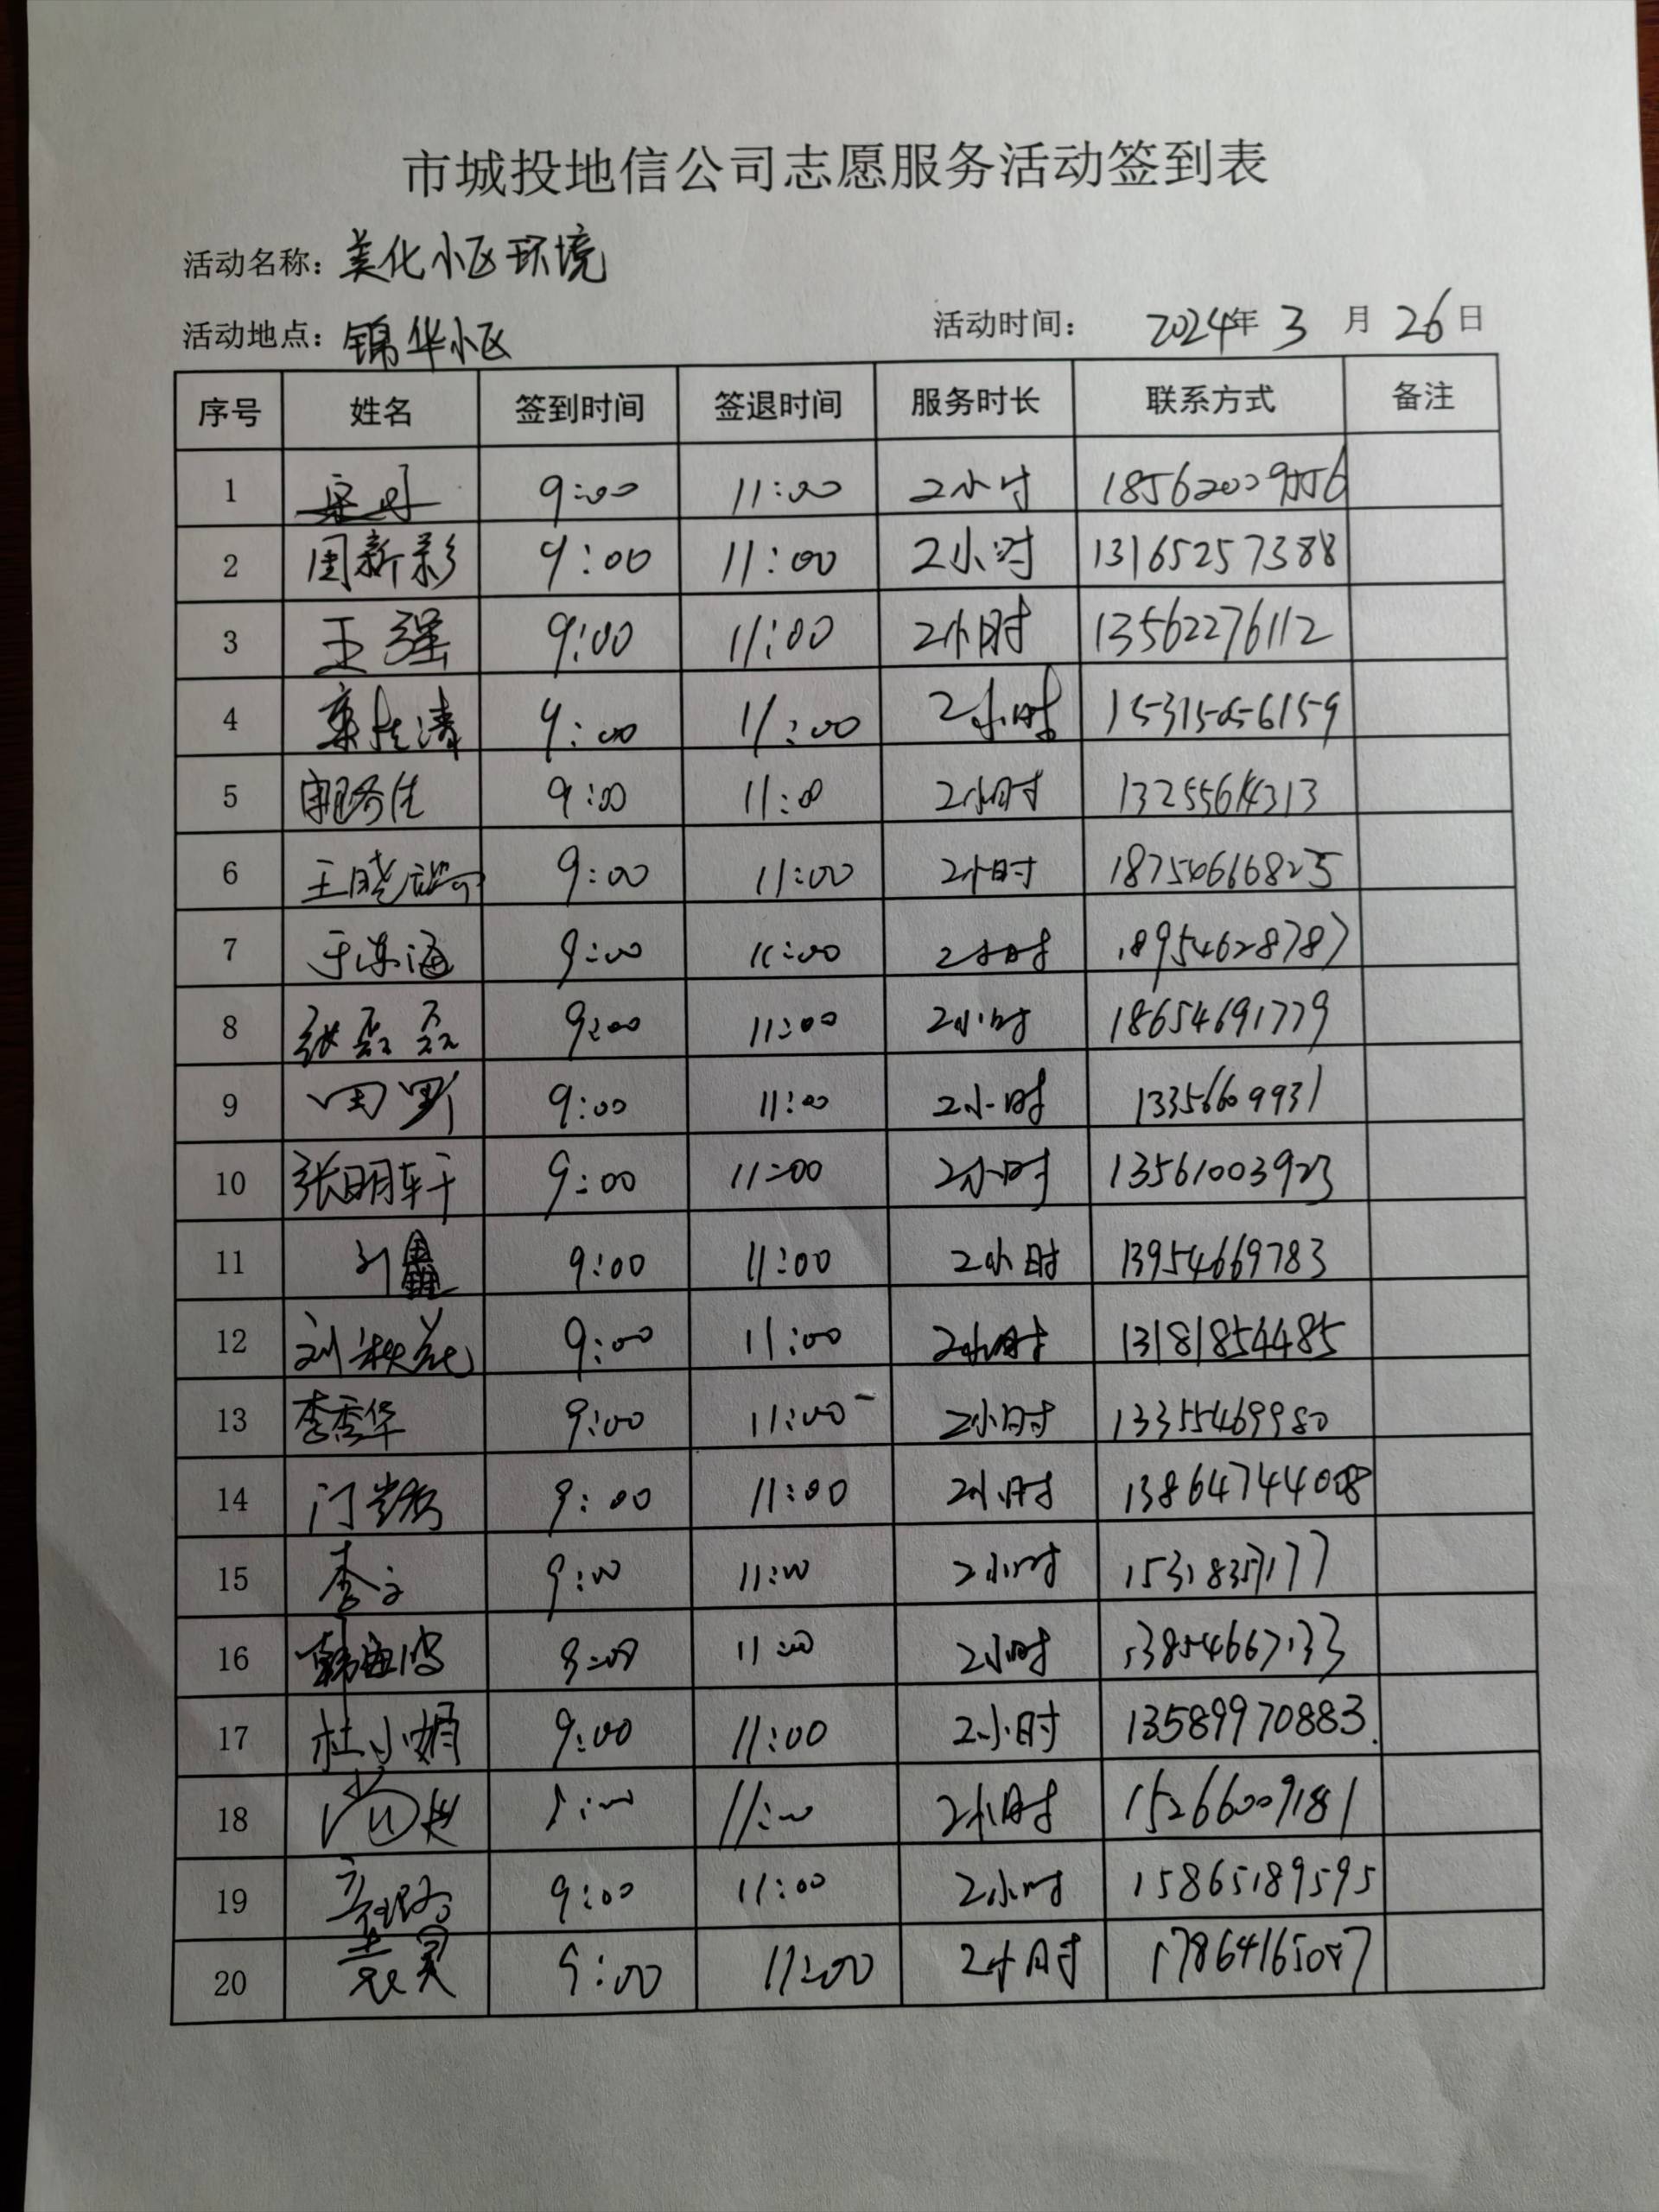 市城投地信公司志愿服务活动签到表
活动名称：美化小区环境
活动地点：锦华小区 活动时间： 2024年 3 月 26日
序号 姓名 签到时间 签退时间 服务时长 联系方式 备注
1 9:00 11:00 2小时
2 周新彩 9:00 11:00 2小时 13165257388
3 王强 9:00 11:00 2小时 13562276112
4 9:00 11:00 2小时 15315056159
5 9:00 11:00 2小时 13255614313
6 9:00 11:00 2小时 18750616825
7 于海 9:00 11:00 2小时 18954628787
8 张磊磊 9:00 11:00 2小时 18654691779
9 9:00 11:00 2小时 13356609931
10 张明轩 9:00 11:00 2小时 13561003923
11 9:00 11:00 2小时 13954669783
12 刘秋花 9:00 11:00 2小时 13181854485
13 李秀华 9:00 11:00 2小时 13355469980
14 9:00 11:00 2小时 13864744008
15 9:00 11:00 2小时 15318357177
16 9:00 11:00 2小时 13854667133
17 杜小娟 9:00 11:00 2小时 13589970883
18 9:00 11:00 2小时 15266009181
19 9:00 11:00 2小时 15865189595
20 袁昊 9:00 11:00 2小时 17864165087